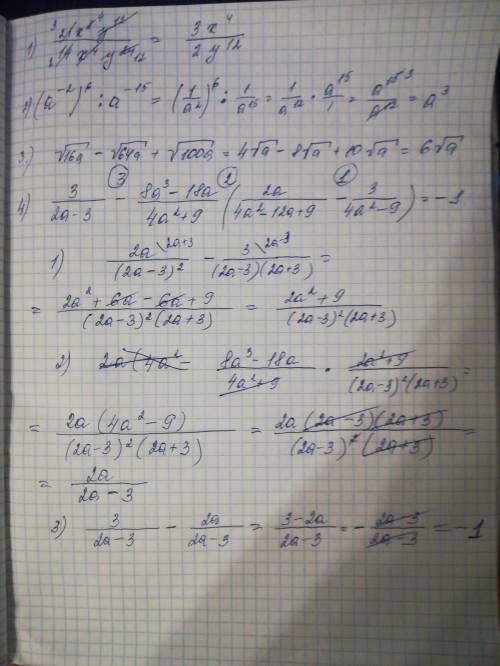 1) 21x⁸y¹² / 14x⁴y²⁴ = 3x⁴ / 2y¹²
2) (a⁻²)⁶ : a⁻¹⁵ = (1/a²)⁶ : 1/a¹⁵ = 1/a¹² · a¹⁵/1 = a¹⁵ ³/a¹² = a³
3) √16a − √64a + √100a = 4√a − 8√a + 10√a = 6√a
4) 3/(2a−3) −③ (8a³−18a)/(4a²+9) ② (2a/(4a²−12a+9) −① 3/(4a²−9)) = −1
1) 2a\2a+3 / (2a−3)² − 3\2a−3 / (2a−3)(2a+3) =
= (2a² + 6a − 6a + 9) / (2a−3)²(2a+3) = (2a²+9) / (2a−3)²(2a+3)
2) 2a(4a²− (8a³−18a)/(4a²+9) · (2a²+9) / (2a−3)²(2a+3) =
= 2a(4a²−9) / (2a−3)²(2a+3) = 2a(2a−3)(2a+3) / (2a−3)²(2a+3) =
= 2a / (2a−3)
3) 3/(2a−3) − 2a/(2a−3) = (3−2a)/(2a−3) = − (2a−3)/(2a−3) = −1